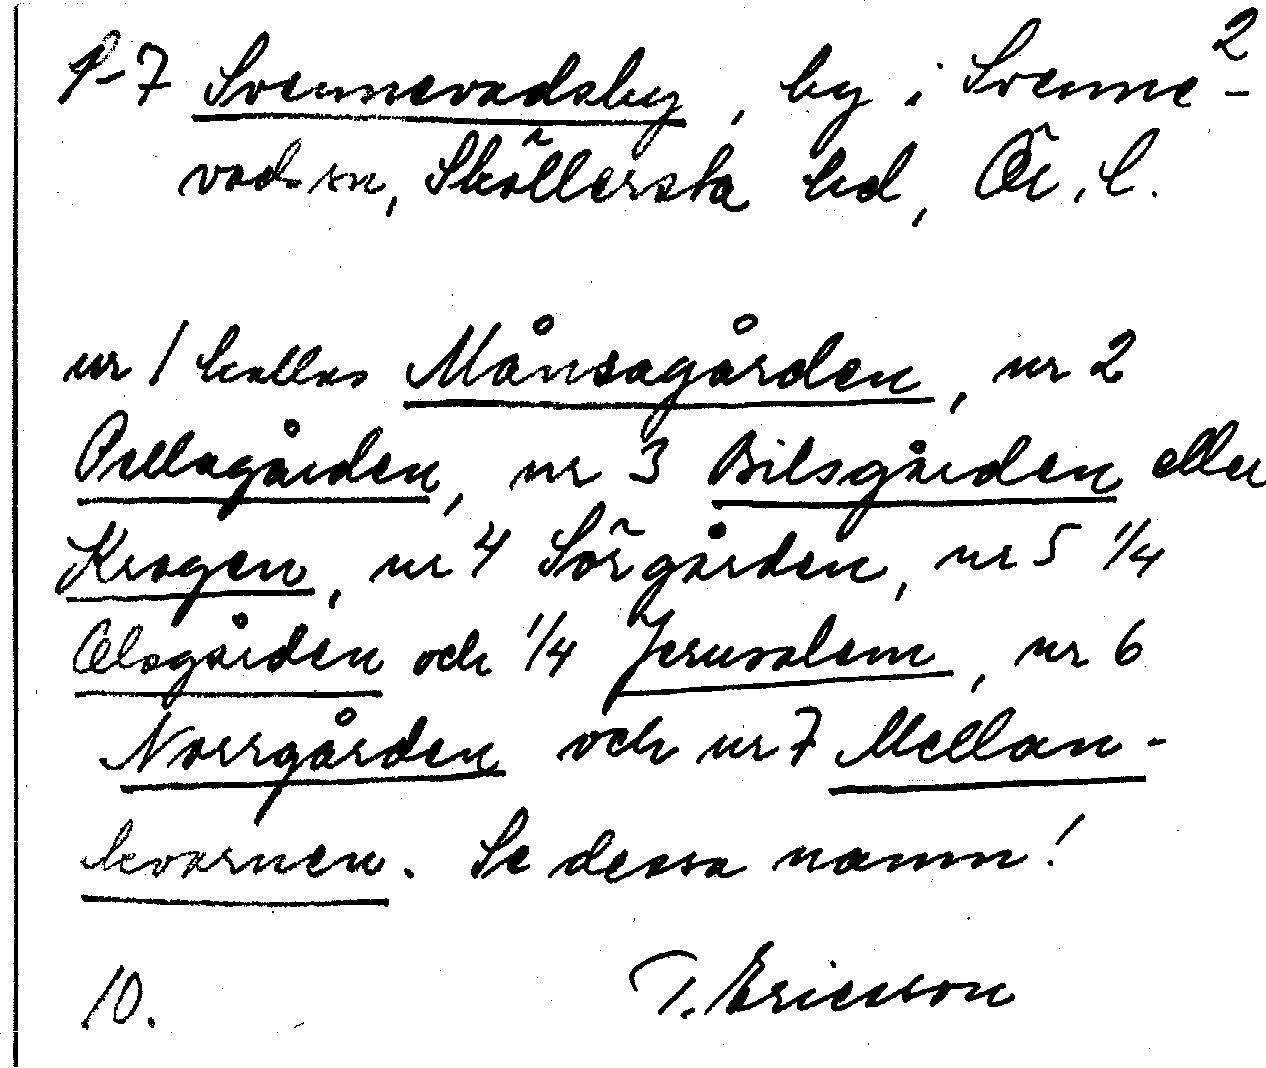 2
1-7 Svennevadsby, by i Svenne-
vad sn, Sköllersta hd, Ör. l.
nr 1 kallas Månsagården, nr 2
Pellagården, nr 3 Bilsgården eller
Krogen, nr 4 Sörgården, nr 5 1/4
Olsgården och 1/4 Jerusalem, nr 6
Norrgården och nr 7 Mellan-
kvarnen. Se dessa namn!
10. T. Ericsson